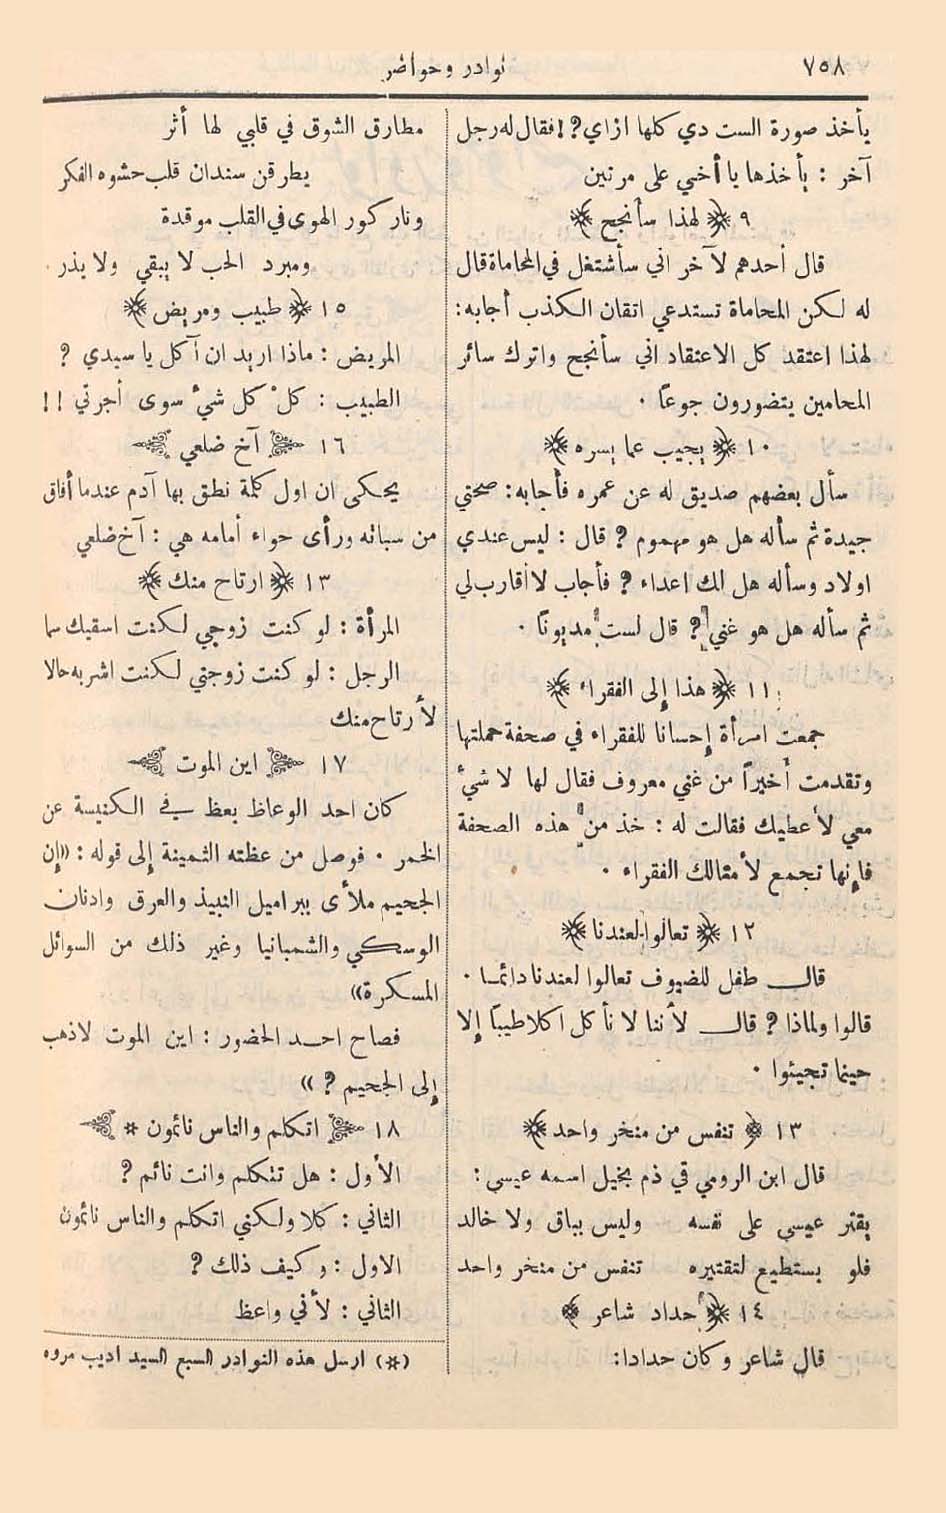 ٧٥٨
نوادر وحواضر
يأخذ صورة الست دي كلها ازاي؟! فقال له رجل
آخر : يأخذها يا أخي على مرتين
٩ ﴿ لهذا سأنجح ﴾
قال أحدهم لآخر اني سأشتغل في المحاماة قال
له لكن المحاماة تستدعي اتقان الكذب أجابه:
لهذا اعتقد كل الاعتقاد اني سأنجح واترك سائر
المحامين يتضورون جوعاً .
١٠ ﴿ يجيب عما يسره ﴾
سأل بعضهم صديق له عن عمره فأجابه: صحتي
جيدة ثم سأله هل هو مهموم ؟ قال : ليس عندي
اولاد وسأله هل لك اعداء ؟ فأجاب لا أقارب لي
ثم سأله هل هو غني ؟ قال لست مديوناً .
١١ ﴿ هذا إلى الفقراء ﴾
جمعت امرأة إحسانا للفقراء في صحفة حملتها
وتقدمت أخيراً من غني معروف فقال لها لا شيء
معي لأعطيك فقالت له : خذ من هذه الصحفة
فإنها تجمع لأمثالك الفقراء .
١٢ ﴿ تعالوا لعندنا ﴾
قال طفل للضيوف تعالوا لعندنا دائما .
قالوا ولماذا ؟ قال لأننا لا نأكل اكلا طيباً إلا
حينما تجيئوا .
١٣ ﴿ تنفس من منخر واحد ﴾
قال ابن الرومي في ذم بخيل اسمه عيسى :
يقتر عيسى على نفسه وليس بباق ولا خالد
فلو يستطيع لتقتيره تنفس من منخر واحد
١٤ ﴿ حداد شاعر ﴾
قال شاعر وكان حدادا:
مطارق الشوق في قلبي لها أثر
يطرقن سندان قلب حشوه الفكر
ونار كور الهوى في القلب موقدة
ومبرد الحب لا يبقي ولا يذر .
١٥ ﴿ طبيب ومريض ﴾
المريض : ماذا اريد ان آكل يا سيدي ؟
الطبيب : كلْ كل شيء سوى أجرتي !!
١٦ ﴿ آخ ضلعي ﴾
يحكى ان اول كلمة نطق بها آدم عندما أفاق
من سباته ورأى حواء أمامه هي : آخ ضلعي
١٣ ﴿ ارتاح منك ﴾
المرأة : لو كنت زوجي لكنت اسقيك سما
الرجل : لو كنت زوجتي لكنت اشربه حالا
لأرتاح منك
١٧ ﴿ اين الموت ﴾
كان احد الوعاظ يعظ في الكنيسة عن
الخمر . فوصل من عظته الثمينة إلى قوله : «إن
الجحيم ملأى ببراميل النبيذ والعرق وادنان
الوسكي والشمبانيا وغير ذلك من السوائل
المسكرة»
فصاح احد الحضور : اين الموت لاذهب
إلى الجحيم ؟ »
١٨ ﴿ اتكلم والناس نائمون * ﴾
الأول : هل تتكلم وانت نائم ؟
الثاني : كلا ولكني اتكلم والناس نائمون
الاول : وكيف ذلك ؟
الثاني : لأني واعظ
(*) ارسل هذه النوادر السبع السيد اديب مروه